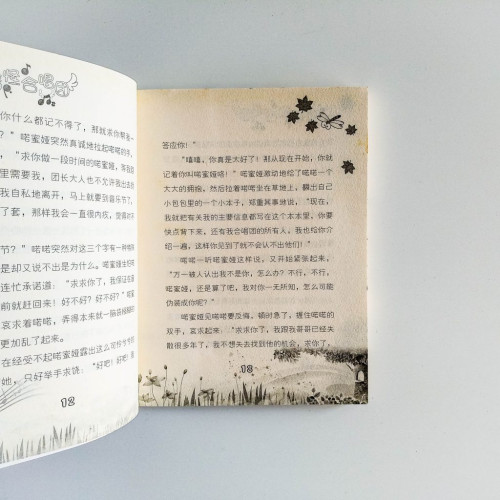 合唱团
你什么都记不得了，那就求你帮我一
？”喏蜜娅突然真诚地拉起喏喏的手，
“求你做一段时间的喏蜜娅，等我
里需要我，团长大人也不允许我出去
我自私地离开，马上就要到音乐节了，
了套，那样我会一直很内疚，
节？”喏喏突然对这三个字有一种
是却又说不出是为什么。喏蜜娅
连忙承诺道：“求求你了，我保证在
前就赶回来！好不好？好不好？”
哀求着喏喏，弄得本来就一脑
更加乱了起来。
在经受不起喏蜜娅露出这么可怜
她，只好举手求饶：“好吧！好吧！
12
答应你！”
“嘻嘻，你真是太好了！那从现在开始，你就
记着你叫喏蜜娅咯！”喏蜜娅激动地给了喏喏一个
大大的拥抱，然后拉着喏喏坐在草地上，翻出自己
小包包里的一个小本子，郑重其事地说，“现在，
我就把有关我的主要信息都写在这个本本里，你要
快点背下来，还有我合唱团的所有人，我也给你介
绍一遍，这样你见到了就不会认不出他们！”
喏喏一听喏蜜娅这样说，又开始紧张起来，
“万一被人认出我不是你，怎么办？不行，不行，
喏蜜娅，还是算了吧，我对你一无所知，怎么可能
伪装成你呢？”
喏蜜娅见喏喏要反悔，顿时急了，握住喏喏的
双手，哀求起来：“求求你了，我跟我哥哥已经失
散很多年了，我不想失去找到他的机会，求你了，
13